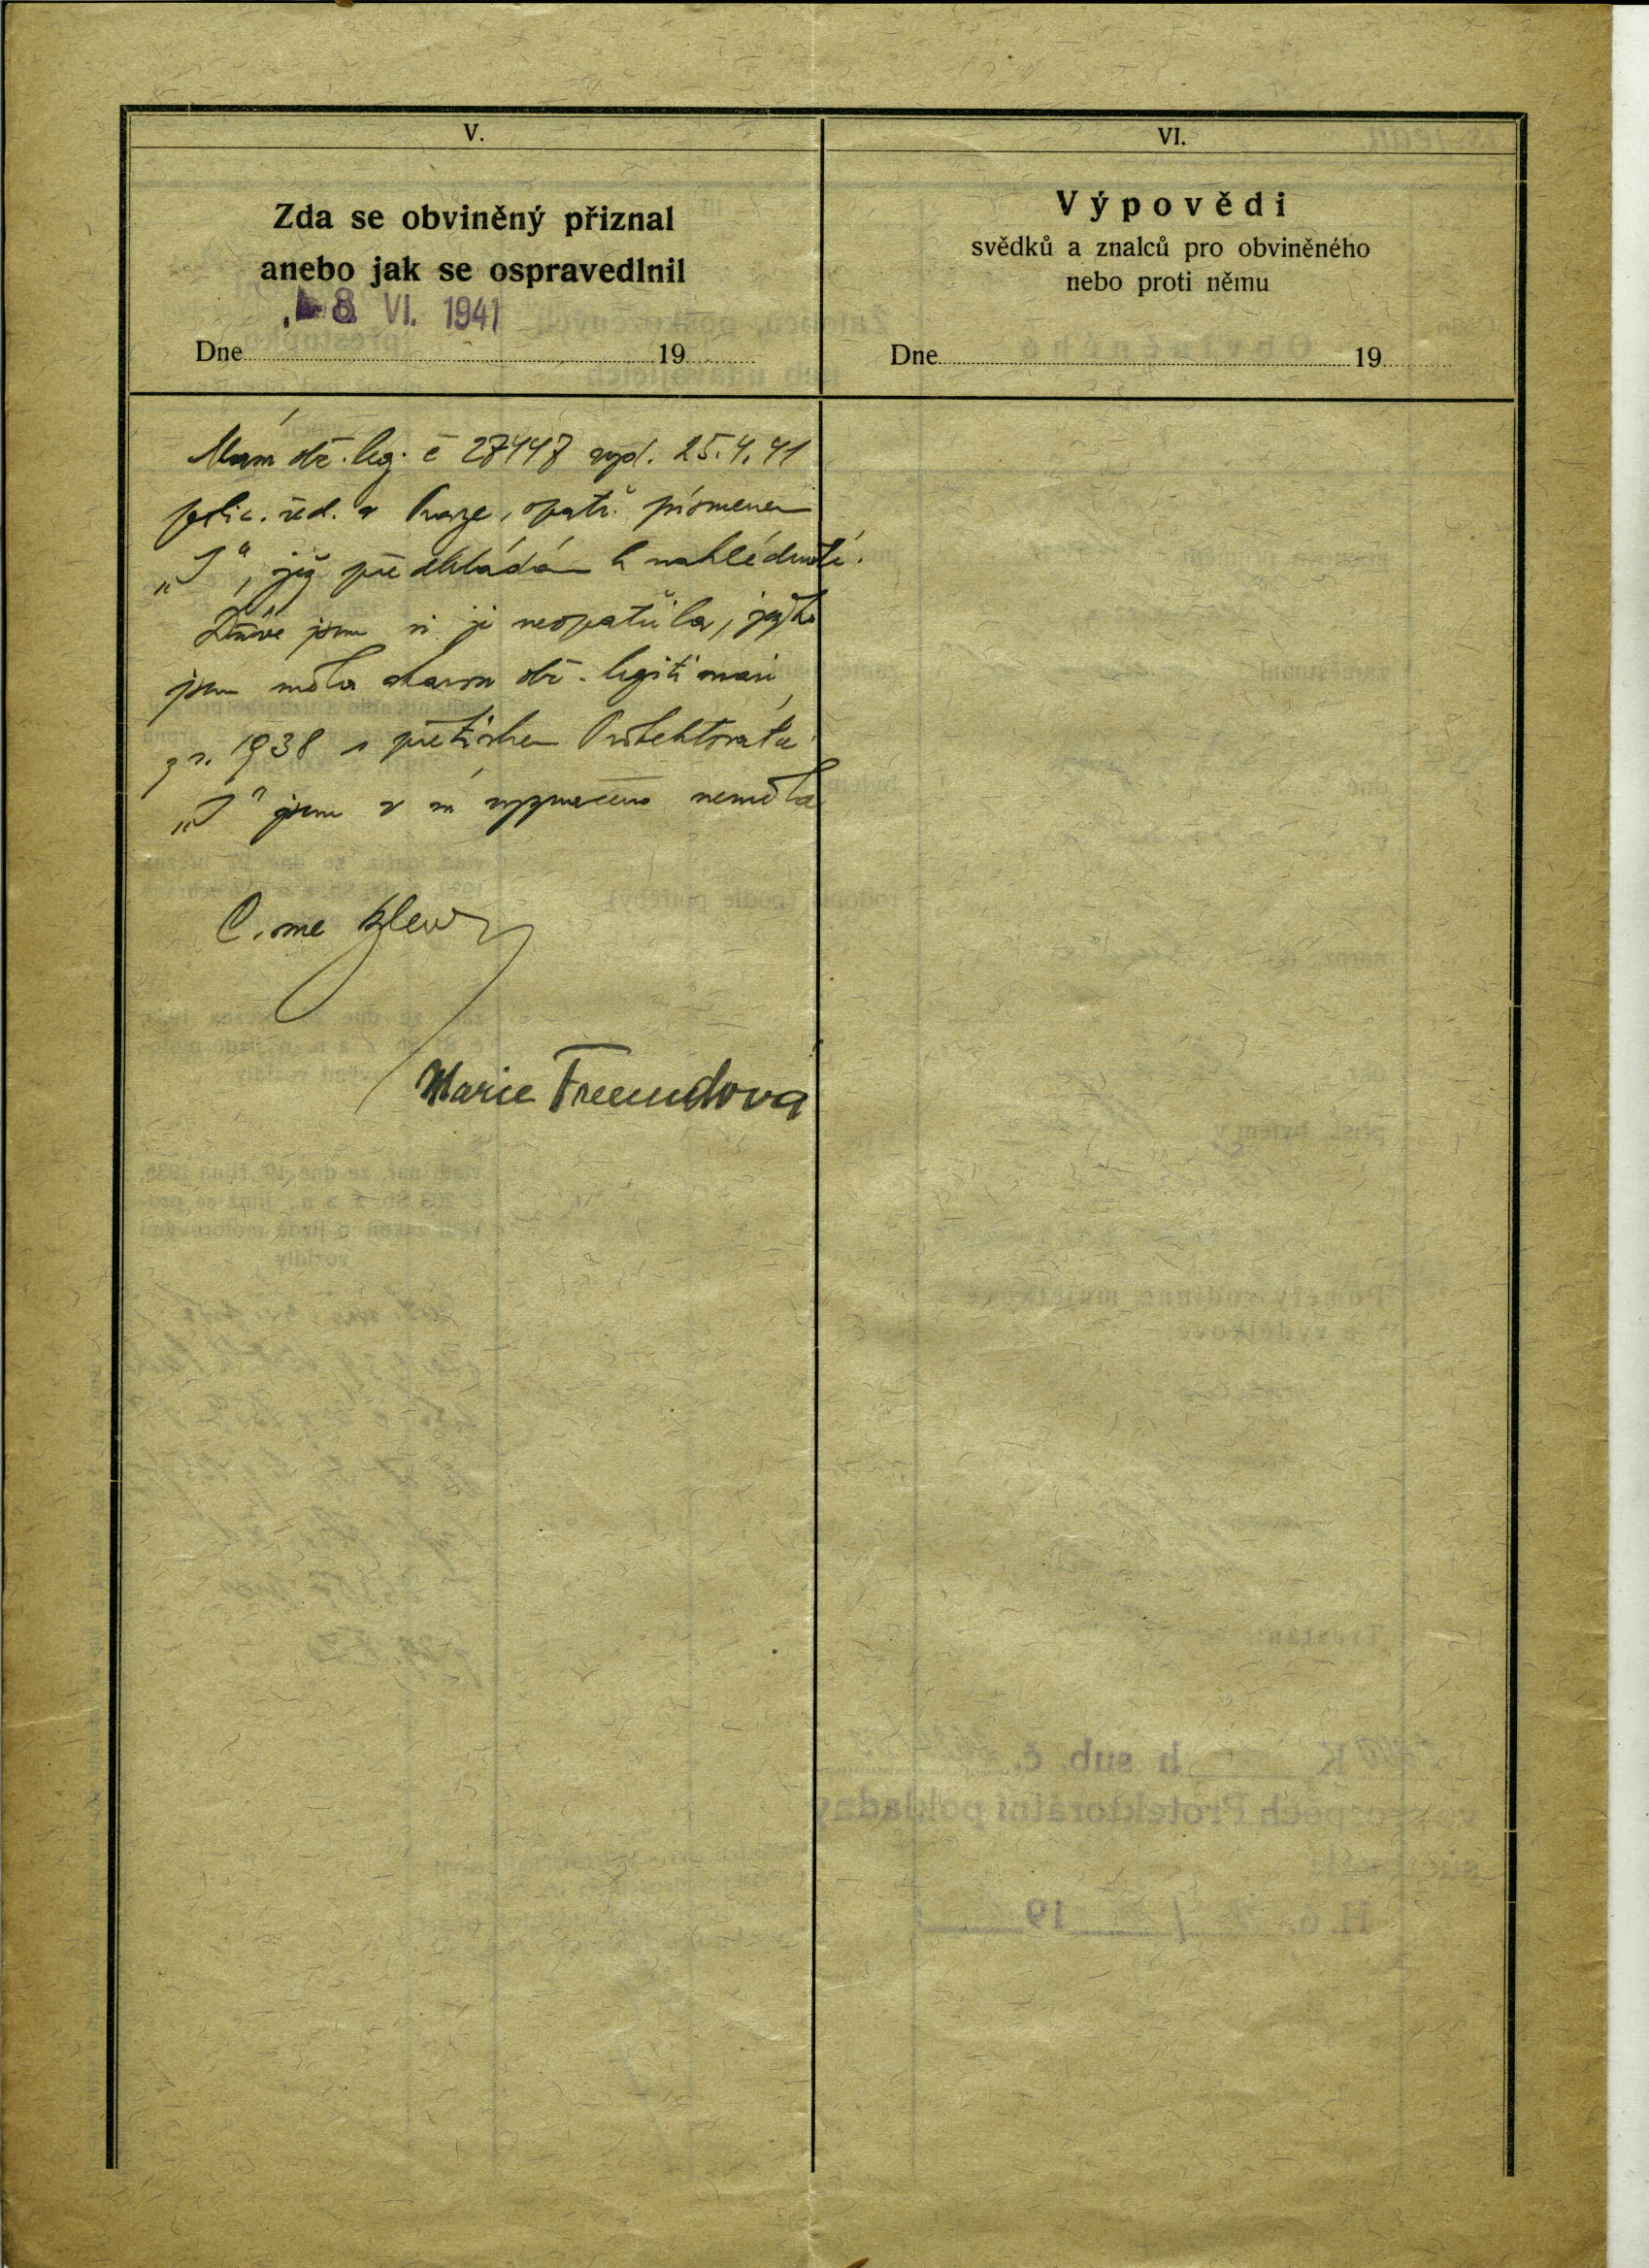 V.
Zda se obviněný přiznal
anebo jak se ospravedlnil
8 VI. 1941
Dne 19
Mám obč. leg. č 27447 vyd. 25.4.41
polic. řed. v Praze, opatř. písmenem
„J“, již předkládám k nahlédnutí.
Dříve jsem si ji neopatřila, ježto
jsem měla starou obč. legitimaci
z r. 1938 s přetiskem Protektorátu
„J“ jsem v ní vyznačeno neměla
Marie Freundova
VI.
Výpovědi
svědků a znalců pro obviněného
nebo proti němu
Dne 19